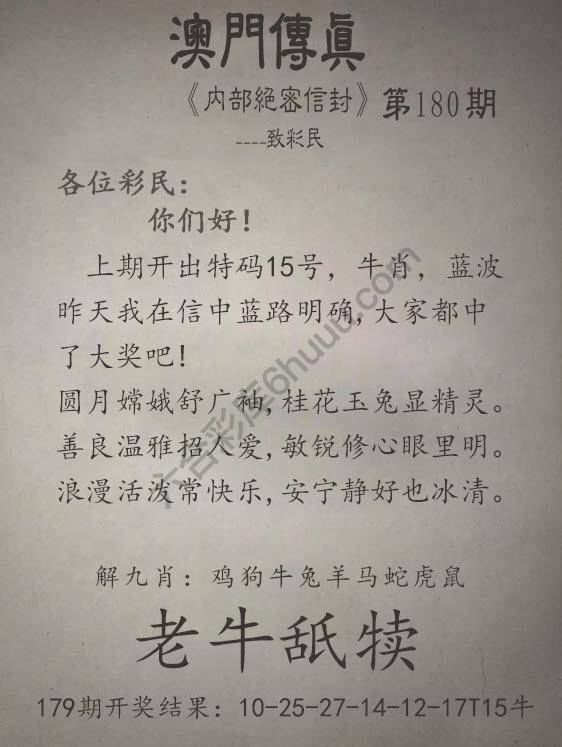 澳門傳真
《内部絕密信封》第180期
----致彩民
各位彩民：
你们好！
上期开出特码15号，牛肖，蓝波
昨天我在信中蓝路明确，大家都中
了大奖吧！
圆月嫦娥舒广袖，桂花玉兔显精灵。
善良温雅招人爱，敏锐修心眼里明。
浪漫活泼常快乐，安宁静好也冰清。
六合彩库6huuu.com
解九肖：鸡狗牛兔羊马蛇虎鼠
老牛舐犊
179期开奖结果：10-25-27-14-12-17T15牛